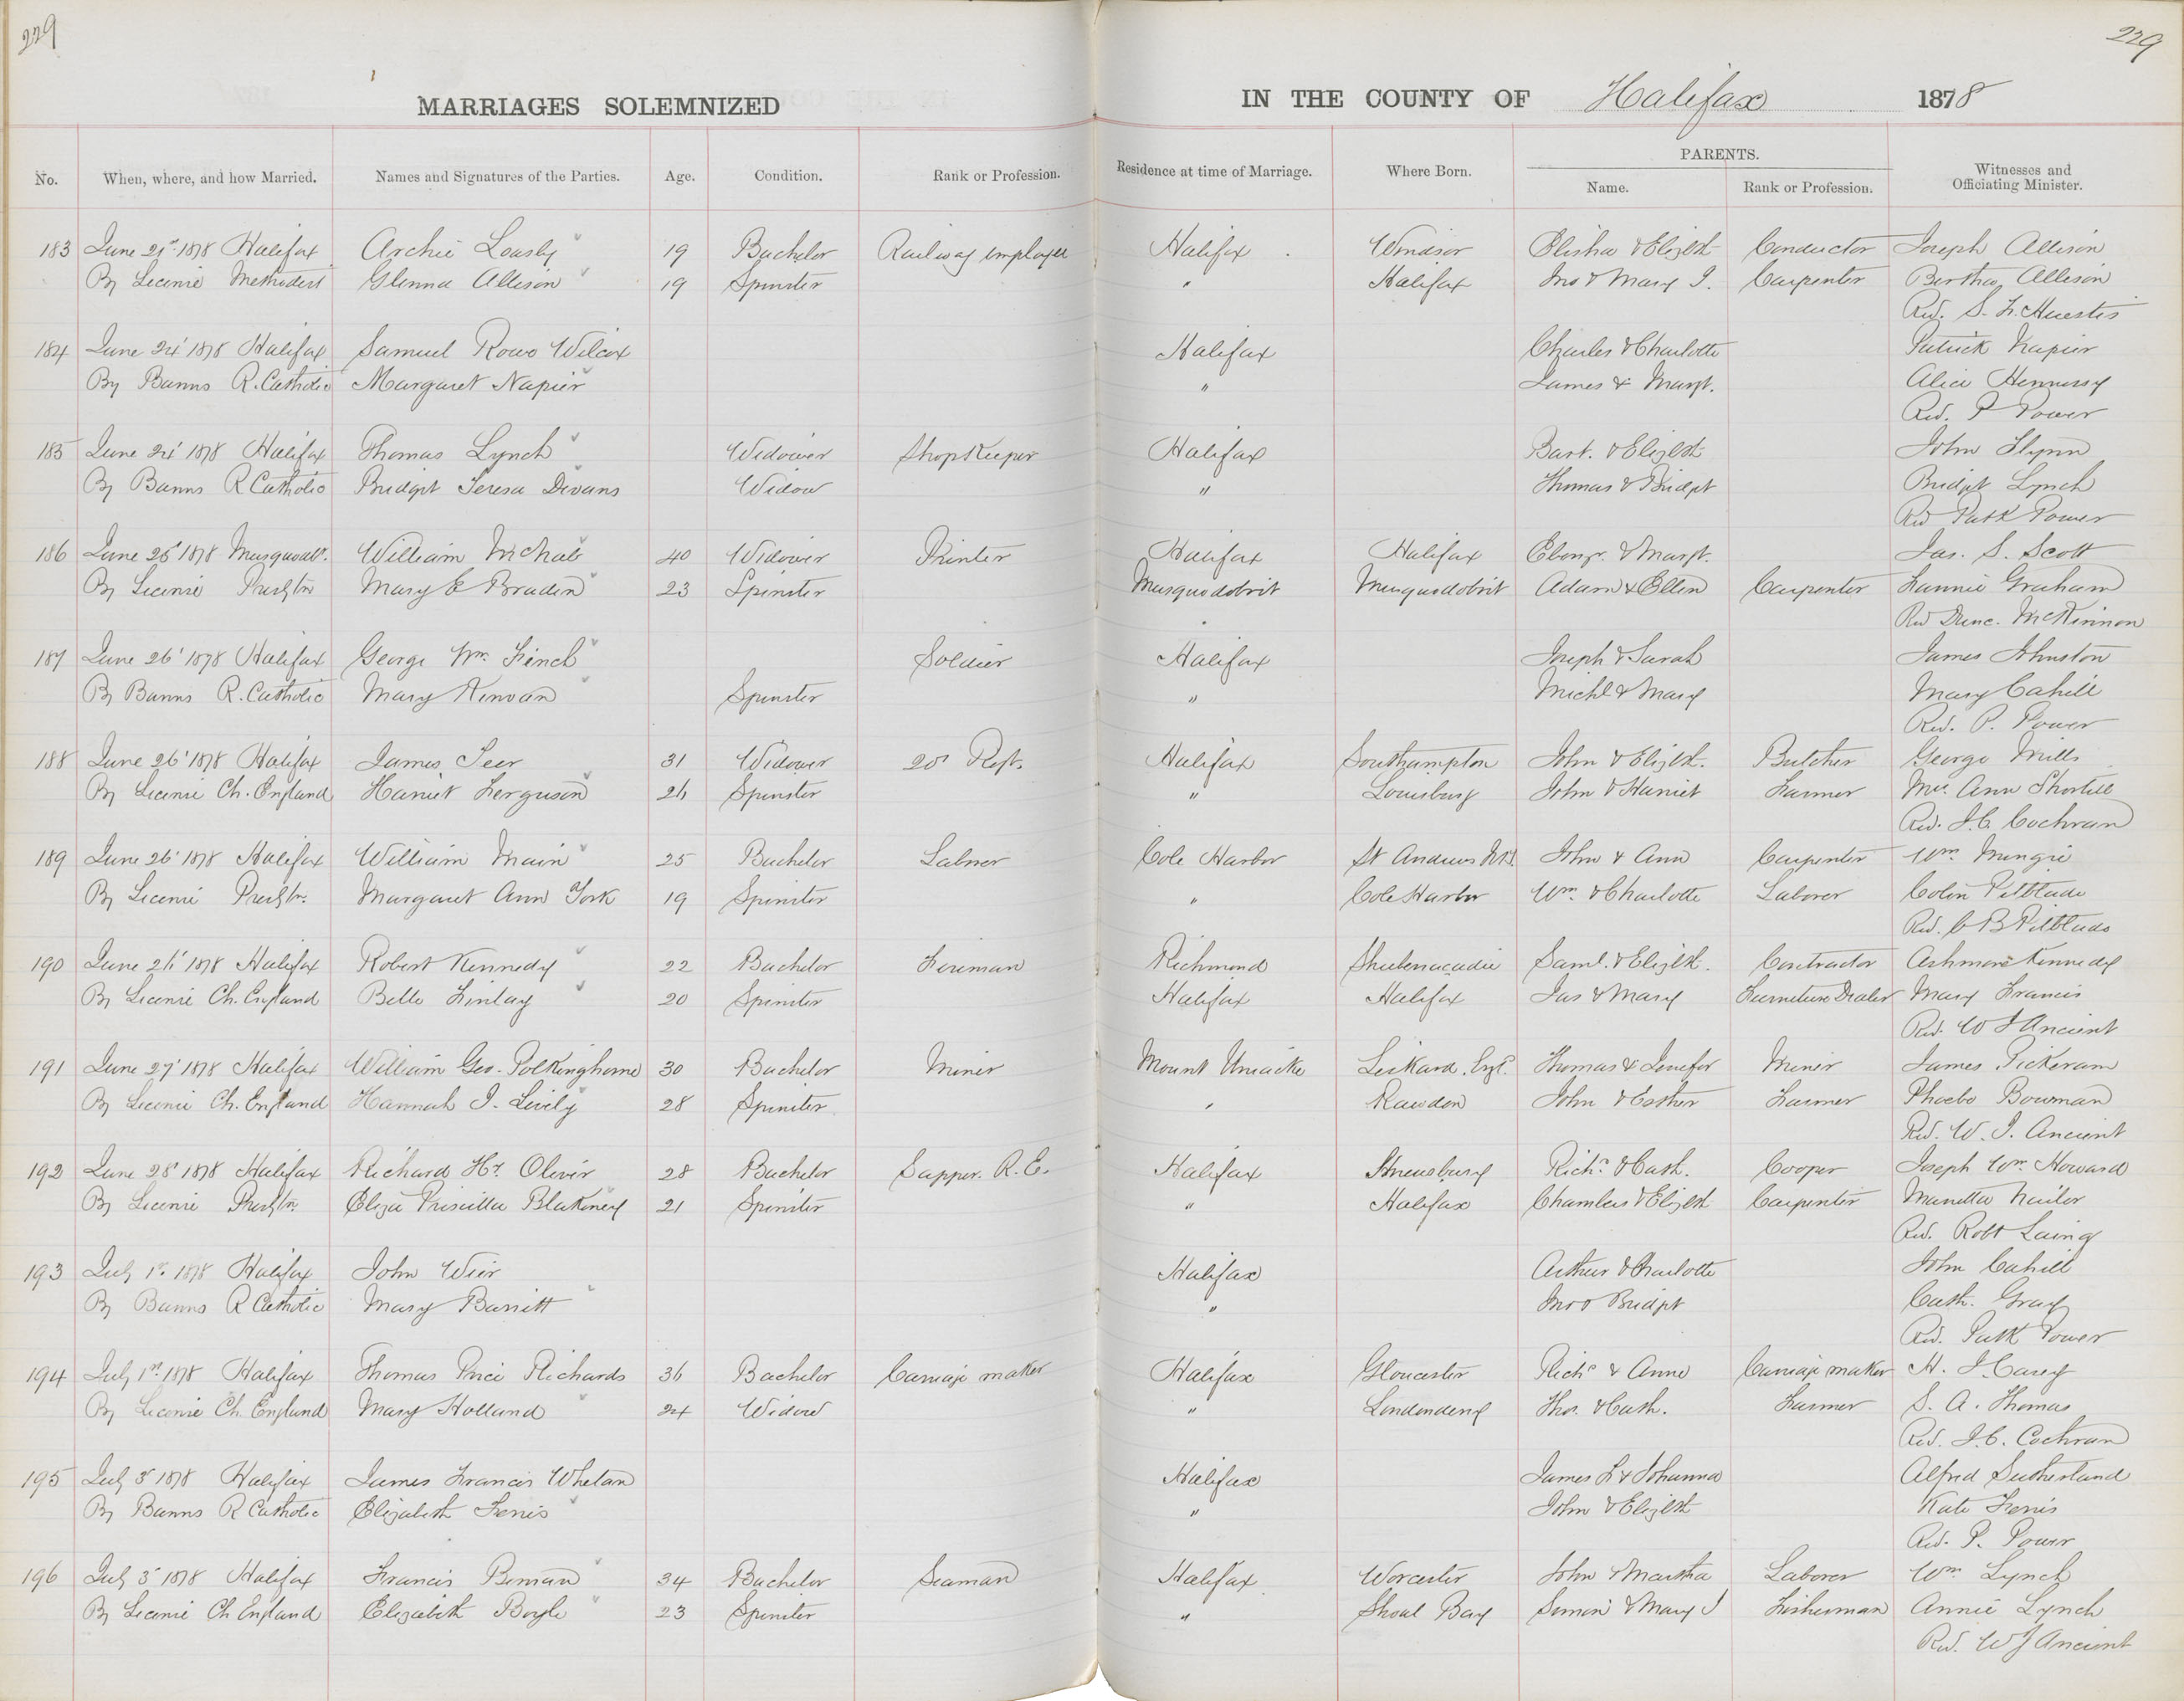 229
229
MARRIAGES SOLEMNIZED IN THE COUNTY OF Halifax 1878
No. When, where, and how Married. Names and Signatures of the Parties. Age. Condition. Rank or Profession. Residence at time of Marriage. Where Born. PARENTS. Name. Rank or Profession. Witnesses and Officiating Minister.
183 June 21st 1878 Halifax Archie Loasby 19 Bachelor Railway employee Halifax Windsor Elisha & Elizth Conductor Joseph Allison
By License Methodist Glenna Allison 19 Spinster " Halifax Jno & Mary J. Carpenter Bertha Allison
Rev. S. F. Huestis
184 June 24' 1878 Halifax Samuel Rowe Wilcox Halifax Charles & Charlotte Patrick Napier
By Banns R. Catholic Margaret Napier " James & Margt. Alice Hennessy
Rev. P Power
185 June 24' 1878 Halifax Thomas Lynch Widower Shop Keeper Halifax Bart. & Elizbth John Flynn
By Banns R Catholic Bridget Teresa Divans Widow " Thomas & Bridget Bridget Lynch
Rev Patk Power
186 June 25' 1878 Musquodt. William McNab 40 Widower Printer Halifax Halifax Ebenzr. & Margt. Jas. S. Scott
By License Presbtn Mary E Braden 23 Spinster Musquodobit Musquodobit Adam & Ellen Carpenter Fannie Graham
Rev Dunc. McKinnon
187 June 26' 1878 Halifax George Wm. Finch Soldier Halifax Joseph & Sarah James Johnston
By Banns R. Catholic Mary Kirwan Spinster " Michl & Mary Mary Cahill
Rev. P. Power
188 June 26' 1878 Halifax James Teer 31 Widower 20' Regt. Halifax Southampton John & Elizbth. Butcher George Mills
By License Ch. England Harriet Ferguson 26 Spinster " Louisburg John & Harriet Farmer Mrs. Ann Shortell
Rev. J. C. Cochran
189 June 26' 1878 Halifax William Main 25 Bachelor Labner Cole Harbor St Andrews John & Ann Carpenter Wm. Mungie
By License Presbtn. Margaret Ann York 19 Spinster " Cole Harbor Wm. & Charlotte Laborer Colin Pitblado
Rev. C B Pitblado
190 June 26' 1878 Halifax Robert Kennedy 22 Bachelor Fireman Richmond Shubenacadie Saml. & Elizbth. Contractor Ashmore Kennedy
By License Ch. England Belle Finlay 20 Spinster Halifax Halifax Jas & Mary Furniture Dealer Mary Francis
Rev. W J Ancient
191 June 27' 1878 Halifax William Geo. Polkinghorne 30 Bachelor Miner Mount Uniacke Liskard. Engd. Thomas & Jenefer Miner James Pickeram
By License Ch. England Hannah J. Lively 28 Spinster " Rawdon John & Esther Farmer Phoebe Bowman
Rev. W. J. Ancient
192 June 28' 1878 Halifax Richard Hy. Oliver 28 Bachelor Sapper. R. E. Halifax Shrewsbury Richd. & Cath. Cooper Joseph Wm. Howard
By License Presbtn. Eliza Priscilla Blakeney 21 Spinster " Halifax Chambers & Elizbth Carpenter Manetta Nailor
Rev. Robt Laing
193 July 1st 1878 Halifax John Wier Halifax Arthur & Charlotte John Cahill
By Banns R Catholic Mary Barritt " Jno & Bridget Cath. Gray
Rev. Patk Power
194 July 1st 1878 Halifax Thomas Price Richards 36 Bachelor Carriage maker Halifax Gloucester Richd & Anne Carriage maker H. J. Casey
By License Ch. England Mary Holland 24 Widow " Londonderry Thos. & Cath. Farmer S. A. Thomas
Rev. J. C. Cochran
195 July 3' 1878 Halifax James Francis Whelan Halifax James F & Johanna Alfred Sutherland
By Banns R Catholic Elizabeth Ferris " John & Elizbth Kate Ferris
Rev. P. Power
196 July 3' 1878 Halifax Francis Beman 34 Bachelor Seaman Halifax Worcester John & Martha Laborer Wm Lynch
By License Ch England Elizabeth Boyle 23 Spinster " Shoal Bay Simon & Mary J Fisherman Annie Lynch
Rev. W J Ancient